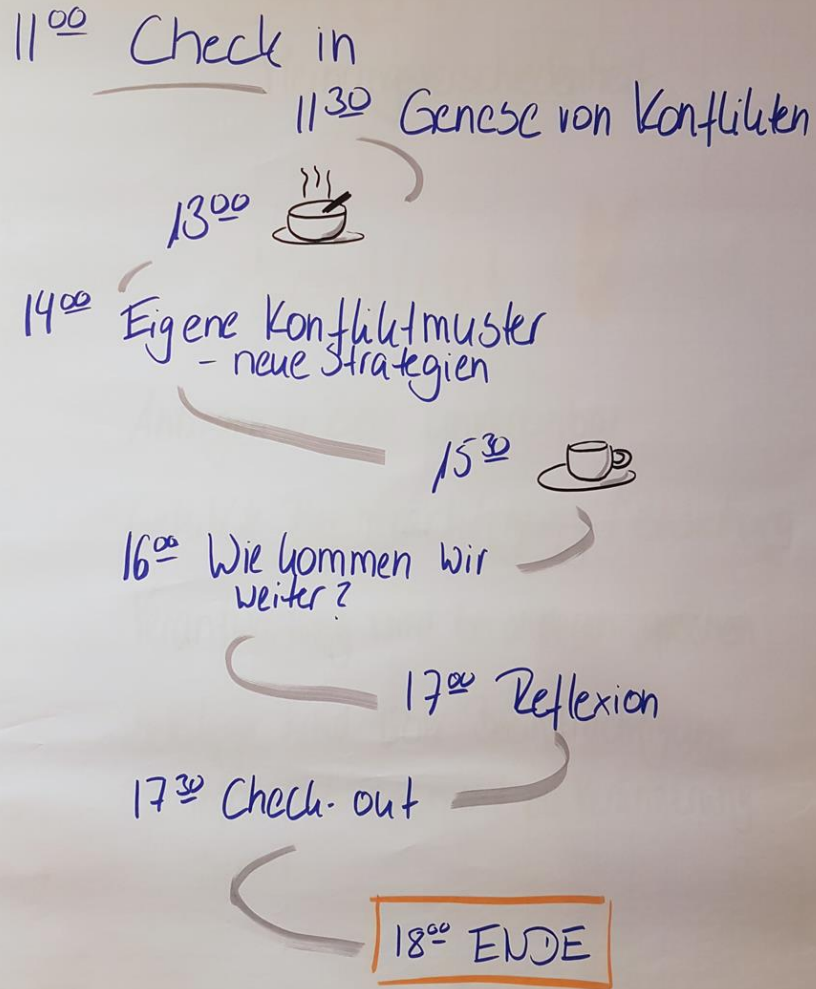 11 00 Check in
11 30 Genese von Konflikten
13 00
14 00 Eigene Konfliktmuster
- neue Strategien
15 30
16 00 Wie kommen wir
weiter?
17 00 Reflexion
17 30 Check-out
18 00 ENDE